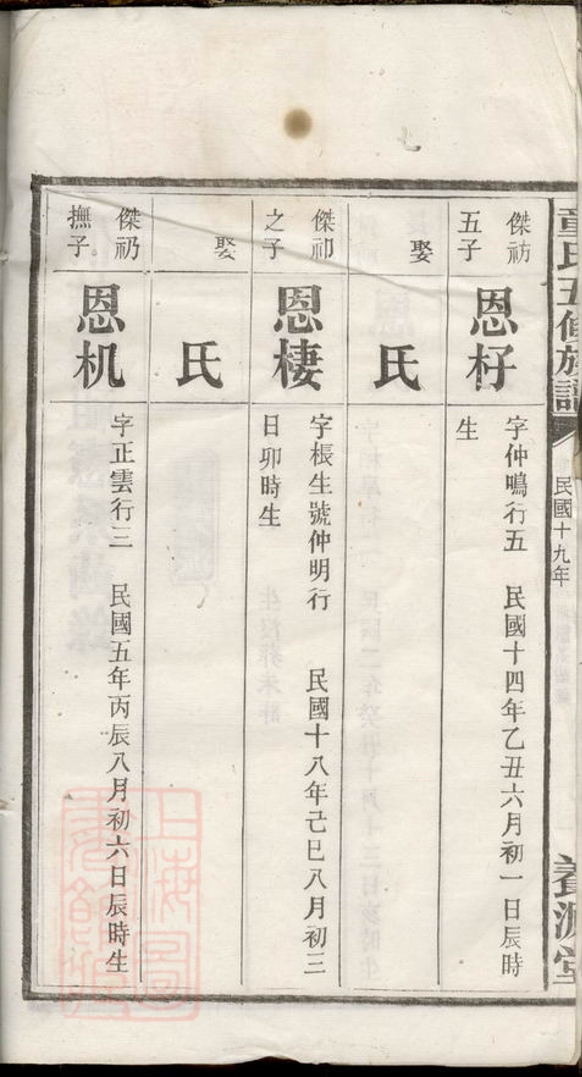 童氏五修族譜
民國十九年
養源堂
傑祊
五子
恩杍
字仲鳴行五 民國十四年乙丑六月初一日辰時
生
娶
氏
傑祁
之子
恩棲
字棖生號仲明行 民國十八年己巳八月初三
日卯時生
娶
氏
傑礽
撫子
恩机
字正雲行三 民國五年丙辰八月初六日辰時生